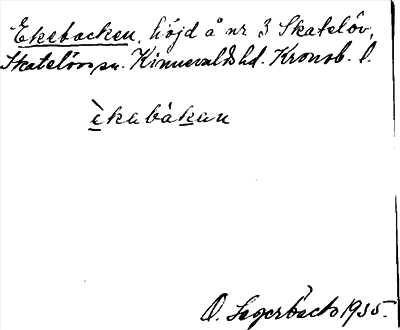 Ekebacken, höjd å nr 3 Skatelöv,
Skatelövs sn. Kinnevalds hd. Kronob. l.
èkabàkan
O. Segerbäck 1935.